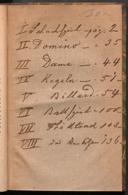 I Schachspiel pag. 2
II Domino - . 35
III Dame - . 44
IV Kegeln - . 51
V Billard - 54
VI Ballspiel - 100
VII
VIII 136